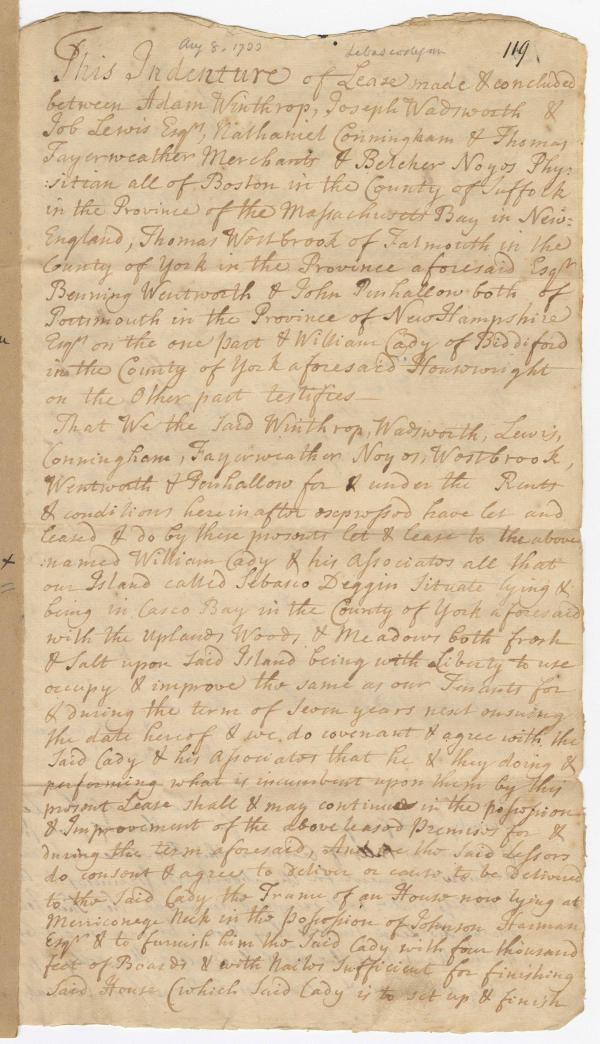 Aug 8. 1733
119
This Indenture of Lease made & concluded
between Adam Winthrop, Joseph Wadsworth &
Job Lewis Esqrs, Nathaniel Conningham & Thomas
Fayerweather Merchants & Belcher Noyes Phy:
:sitian all of Boston in the County of Suffolk
in the Province of the Massachusets Bay in New=
England, Thomas Westbrook of Falmouth in the
County of York in the Province aforesaid Esqr
Benning Wentworth & John Penhallow both of
Portsmouth in the Province of New Hampshire
Esqrs on the one part & William Cady of Biddiford
in the County of York aforesaid Housewright
on the Other part testifies—
That We the said Winthrop, Wadsworth, Lewis,
Conningham, Fayerweather Noyes, Westbrook,
Wentworth & Penhallow for & under the Rents
& conditions hereinafter expressed have let and
leased & do by these presents let & lease to the above
:named William Cady & his Associates all that
our Island called Sebasco Deggin Situate lying &
being in Casco Bay in the County of York aforesaid
with the uplands Woods & Meadows both fresh
& Salt upon said Island being with Liberty to use
occupy & improve the same as our Tenants for
& during the term of Seven years next ensuing
the date hereof & we do covenant & agree with the
Said Cady & his Associates that he & they doing &
performing what is incumbent upon them by this
present Lease shall & may continue in the possession
& Improvement of the above leased Premises for &
during the term aforesaid, And we the Said Lessors
do consent & agree to deliver or cause to be Delivered
to the Said Cady the Frame of an House now lying at
Merriconege Neck in the possession of Johnson Harman
Esqr & to furnish him the Said Cady with four thousand
feet of Boards & with Nailes Sufficient for finishing
Said House (which Said Cady is to set up & finish